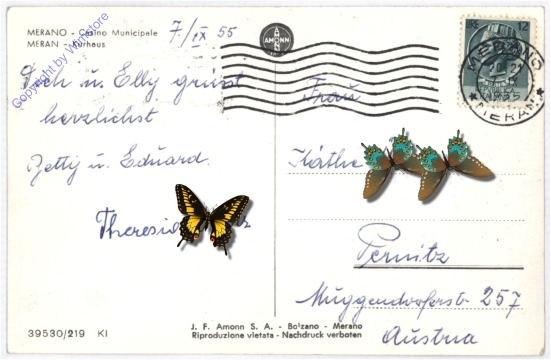 MERANO - Casino Municipale
MERAN - Kurhaus
7/IX 55
AMONN
12
MERANO
MERANO
Copyright by Winistore
Dich u. Elly grüsst
herzlichst
Betty u. Eduard.
Theresia
Frau
Käthe
Pernitz
Muggendorferst 257
Austria
J. F. Amonn S. A. - Bolzano - Merano
Riproduzione vietata - Nachdruck verboten
39530/219 KI